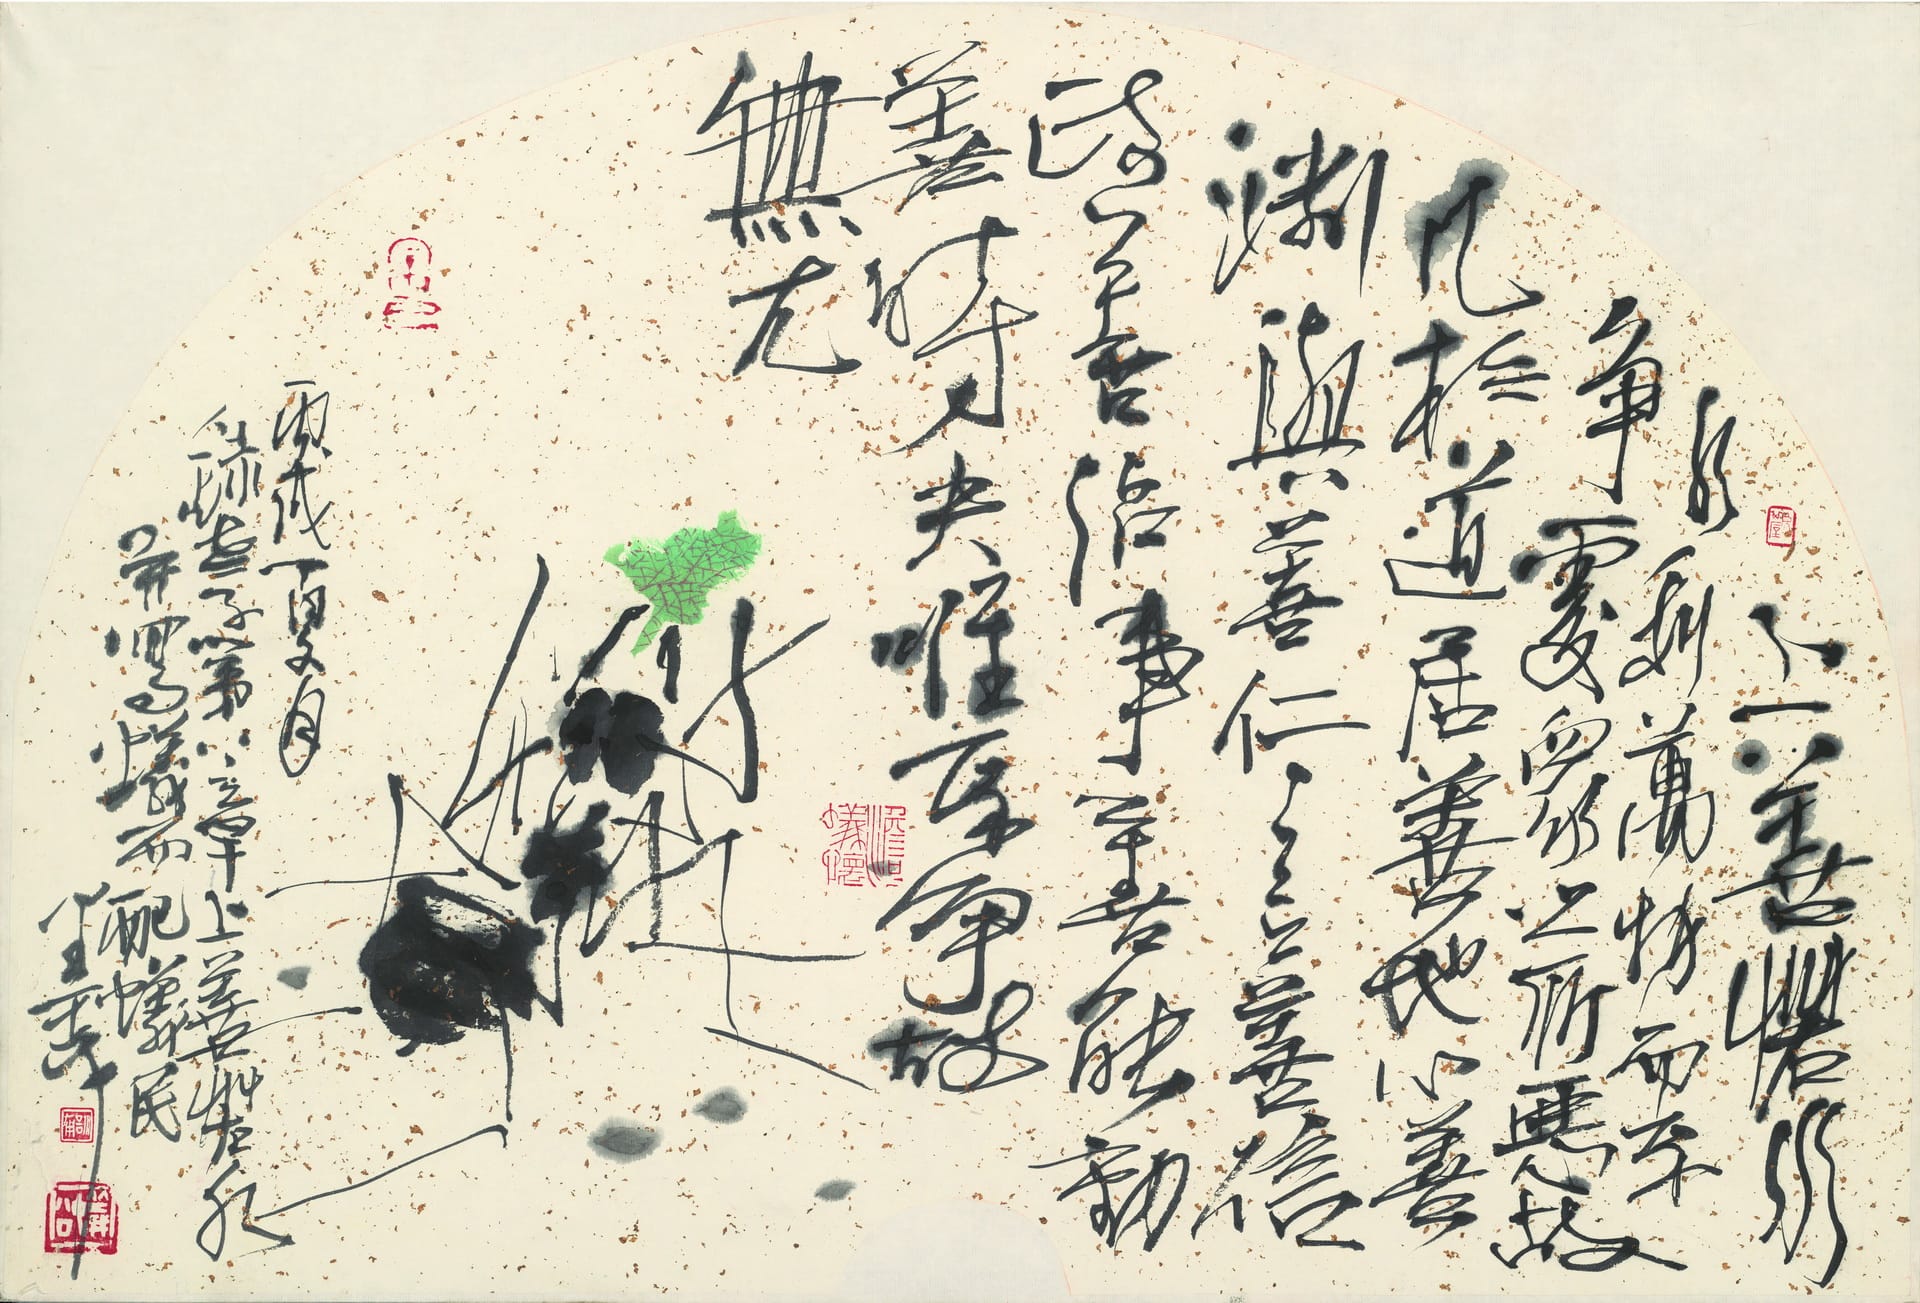 上善若水
水利萬物而不
爭處眾人之所惡故
几於道居善地心善
淵與善仁言善信
政善治事善能動
善時夫唯不爭故
無尤
丙戌
錄老子第八章上善若水
并寫蟻而配蟻民